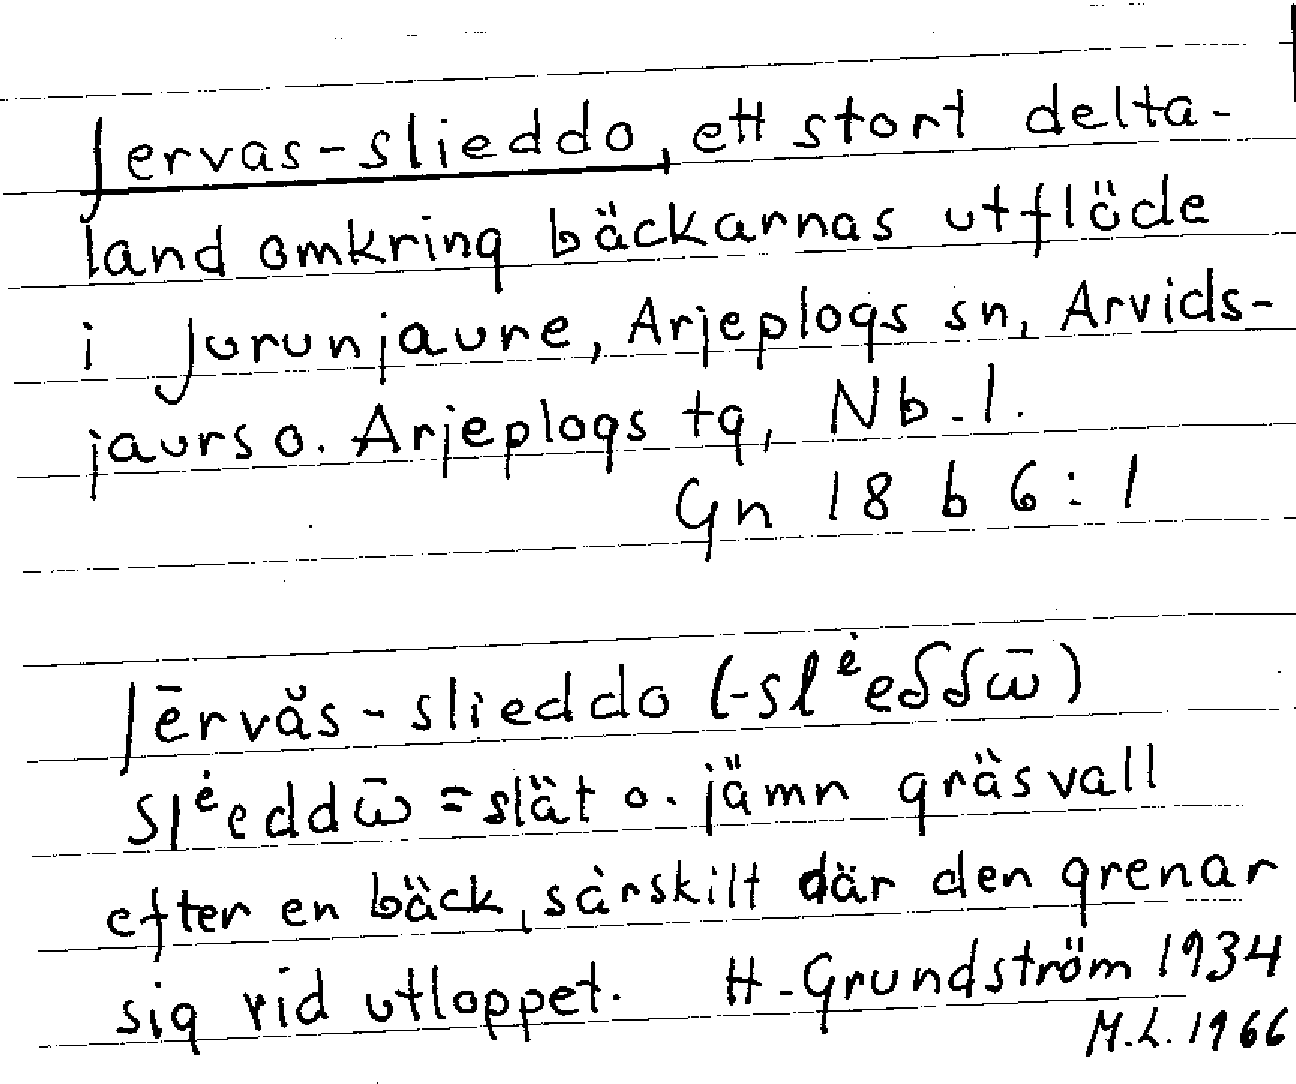 Jervas-slieddo, ett stort delta-
land omkring bäckarnas utflöde
i Jurunjaure, Arjeplogs sn, Arvids-
jaurs o. Arjeplogs tg, Nb. l.
Gn 18 b 6:1
Jērvăs-slieddo (-slėeδδω̄)
slėeddω̄ = slät o. jämn gräsvall
efter en bäck, särskilt där den grenar
sig vid utloppet. H. Grundström 1934
M.L. 1966